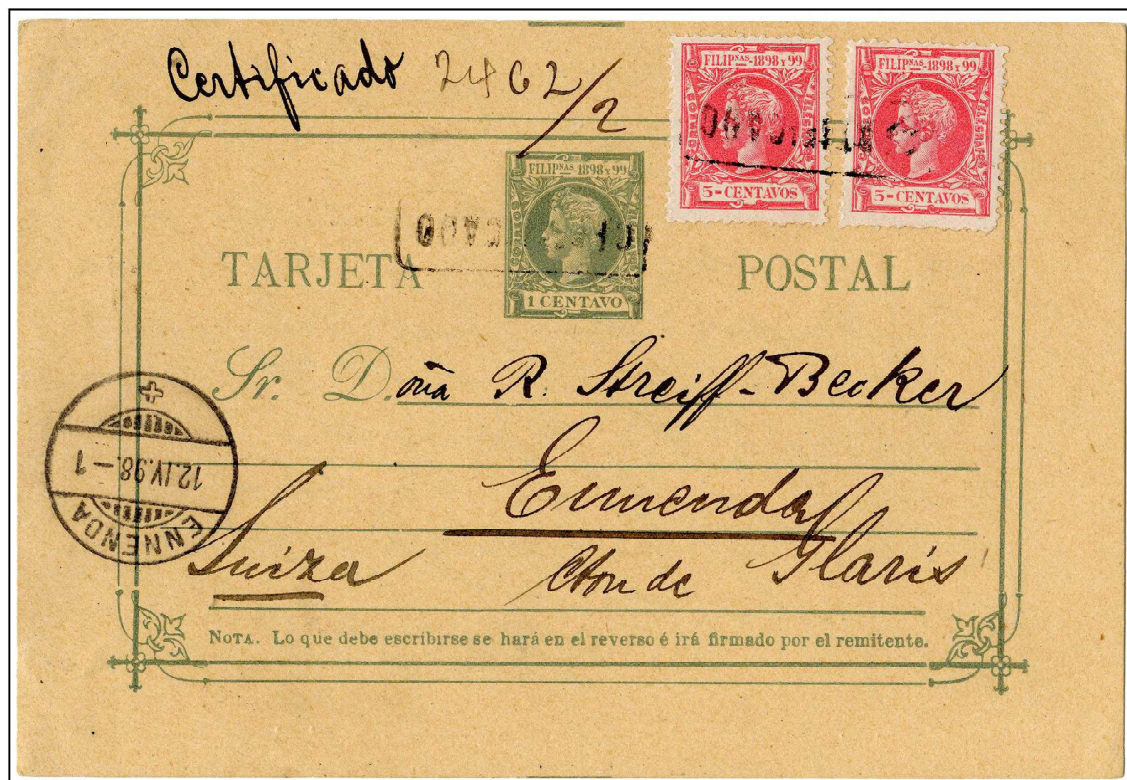 Certificado 2462/2
FILIPNAS-1898 Y 99
CORREOS
TELEGRAFOS
5-CENTAVOS
FILIPNAS-1898 Y 99
TELEGRAFOS
5-CENTAVOS
CERTIFICADO
FILIPSAS 1898 Y 99
1 CENTAVO
CERTIFICADO
TARJETA POSTAL
Sr. D.oña R. Streiff-Becker
Ennenda
Suiza Cton de Glaris
ENNENDA
12.IV.98.-1
NOTA. Lo que debe escribirse se hará en el reverso é irá firmado por el remitente.